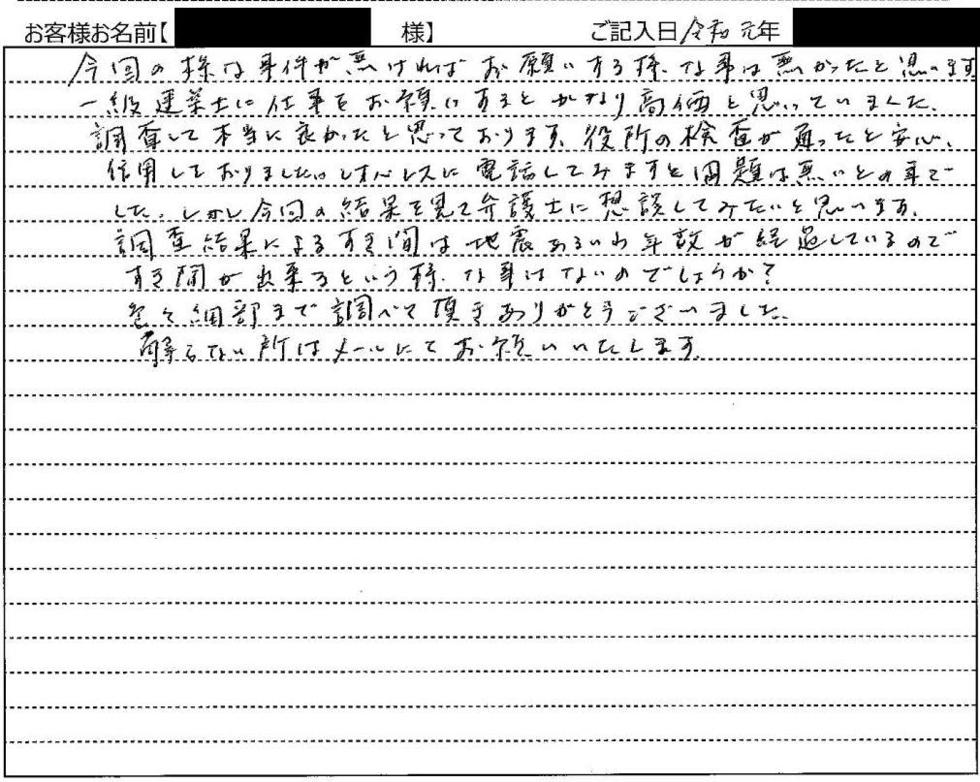 お客様お名前【 様】 ご記入日 令和元年
今回の様な事件が無ければお願いする様な事は無かったと思います
一級建築士に仕事をお願いするとかなり高価と思っていました。
調査して本当に良かったと思っております。役所の検査が通ったと安心、
信用しておりました。レオパレスに電話してみますと問題は無いとの事で
した。しかし今回の結果を見て弁護士に想談してみたいと思います。
調査結果によるすき間は地震あるいわ年数が経過しているので
すき間が出来るという様な事はないのでしょうか?
色々細部まで調べて頂きありがとうございました。
解らない所はメールにてお願いいたします。